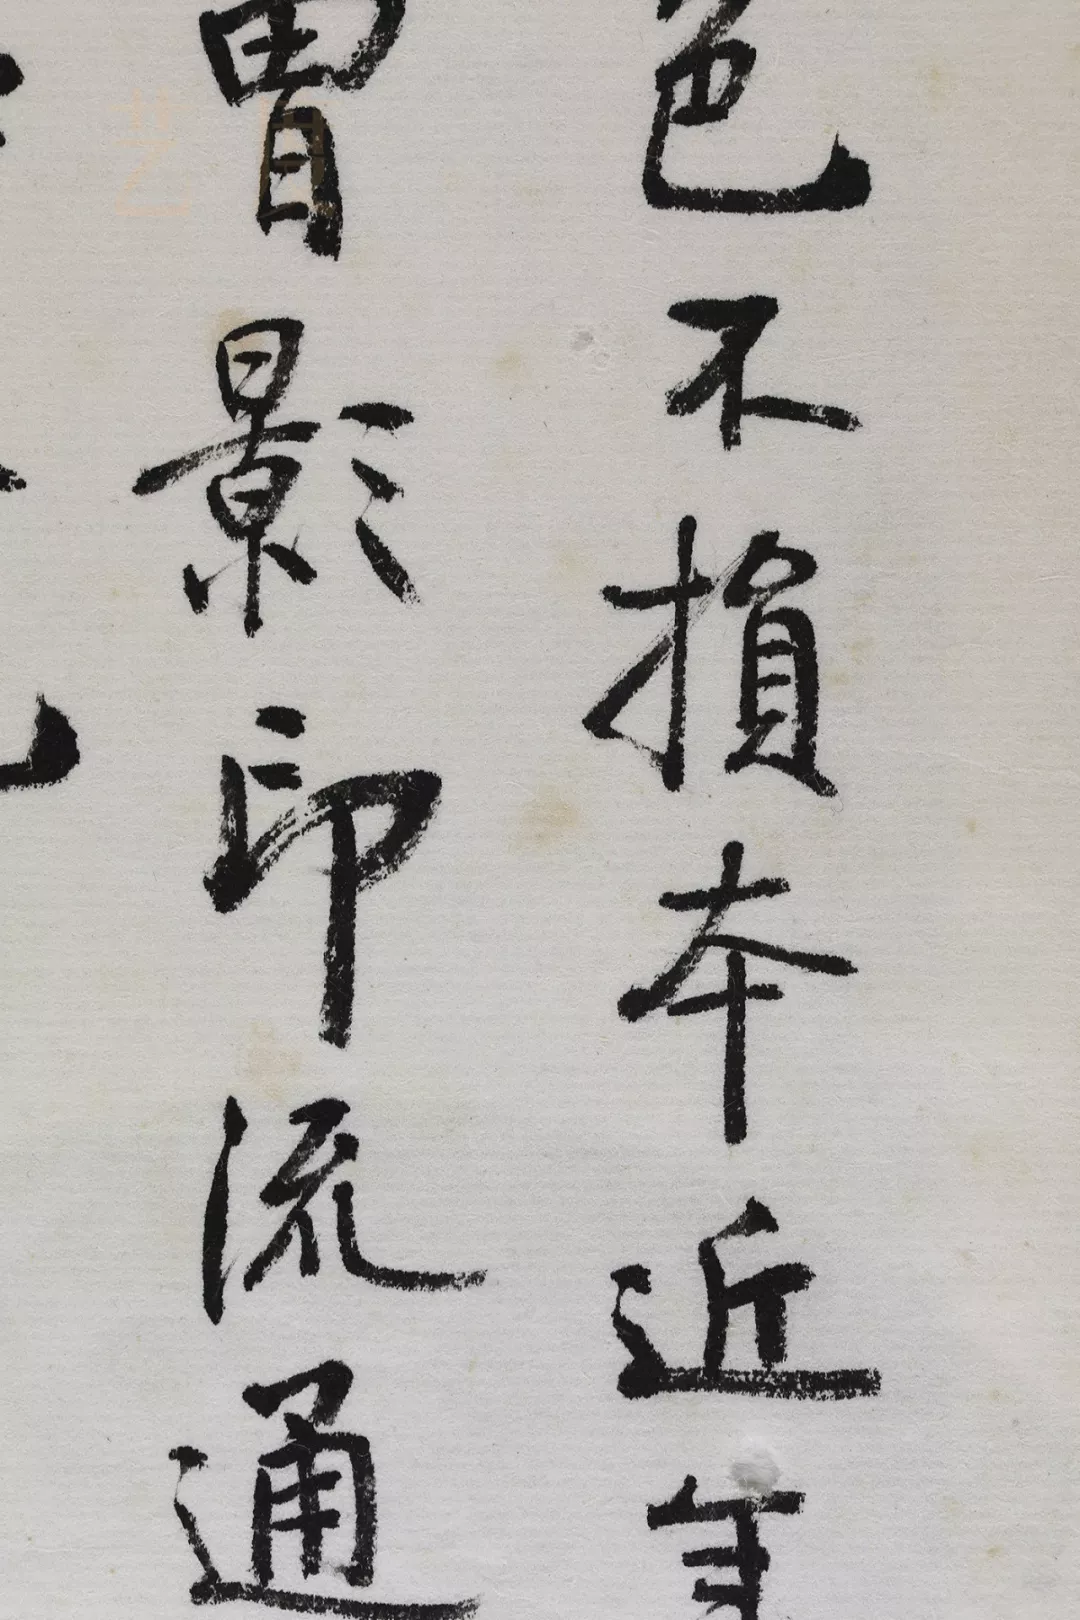 色不損本近年
曾影印流通
艺